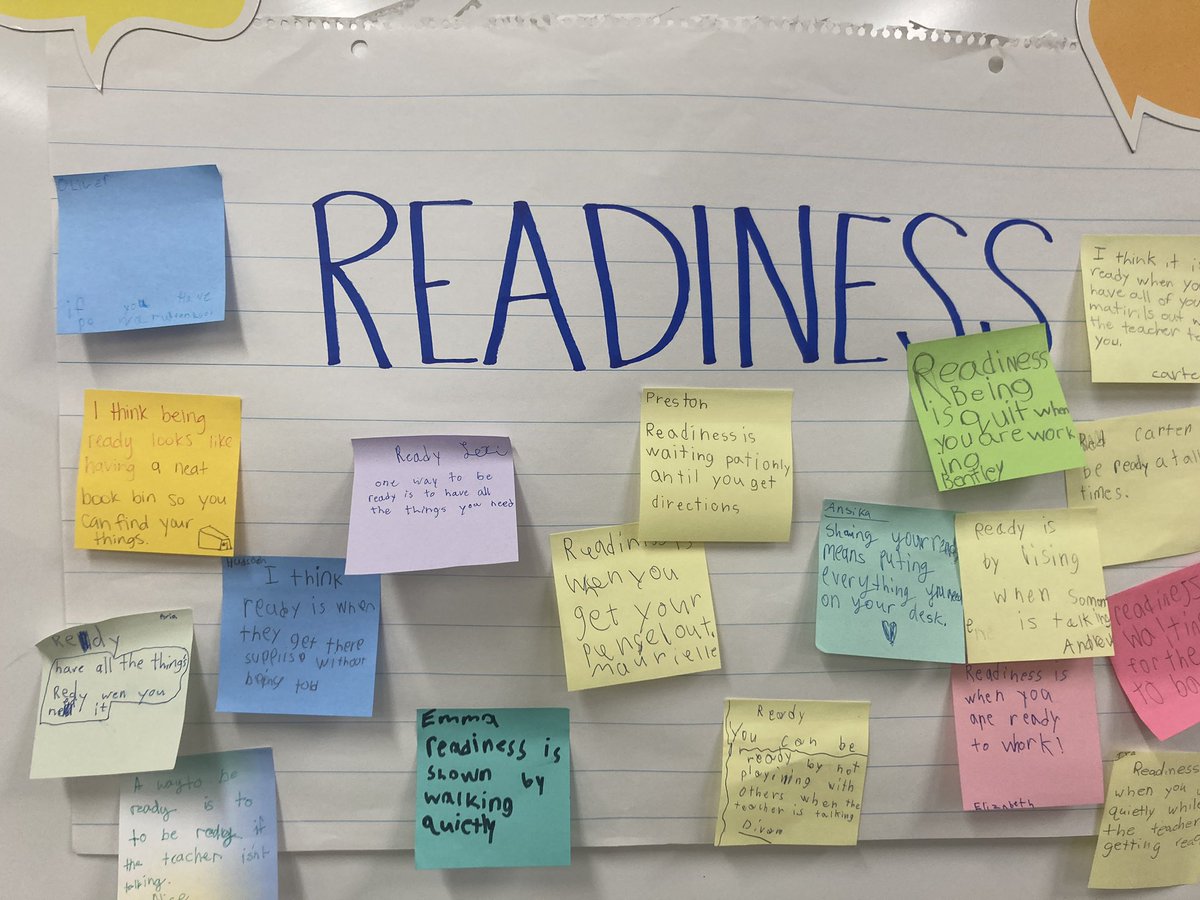 READINESS
Oliver
if you have
I think it i
ready when yo
have all of yo
matirils out
the teacher te
you.
carte
Readiness
Being
is quit when
you are work
ing
Bentley
I think being
ready looks like
having a neat
book bin so you
can find your
things.
Ready Lexi
one way to be
ready is to have all
the things you need
Preston
Readiness is
waiting pationly
antil you get
directions
Carten
be ready atall
times.
Hudson
I think
ready is when
they get there
supplise without
being told
Readiness is
when you
get your
pensel out.
maurielle
Ansika
Shoing your read
means puting
everything you need
on your desk.
Ready is
by lising
when Somon
e is talking
Andrew
readiness
waitin
for the
to b
Aria
Ready
have all the things
Redy wen you
it
Emma
readiness is
shown by
walking
quietly
Ready
You can be
ready by not
playining with
others when the
teacher is talking
Divam
Readiness is
when you
are ready
to work!
Elizabeth
A way to be
ready is to
to be redy if
the teacher isn't
talking.
Readiness
when you
quietly while
the teacher
getting rea